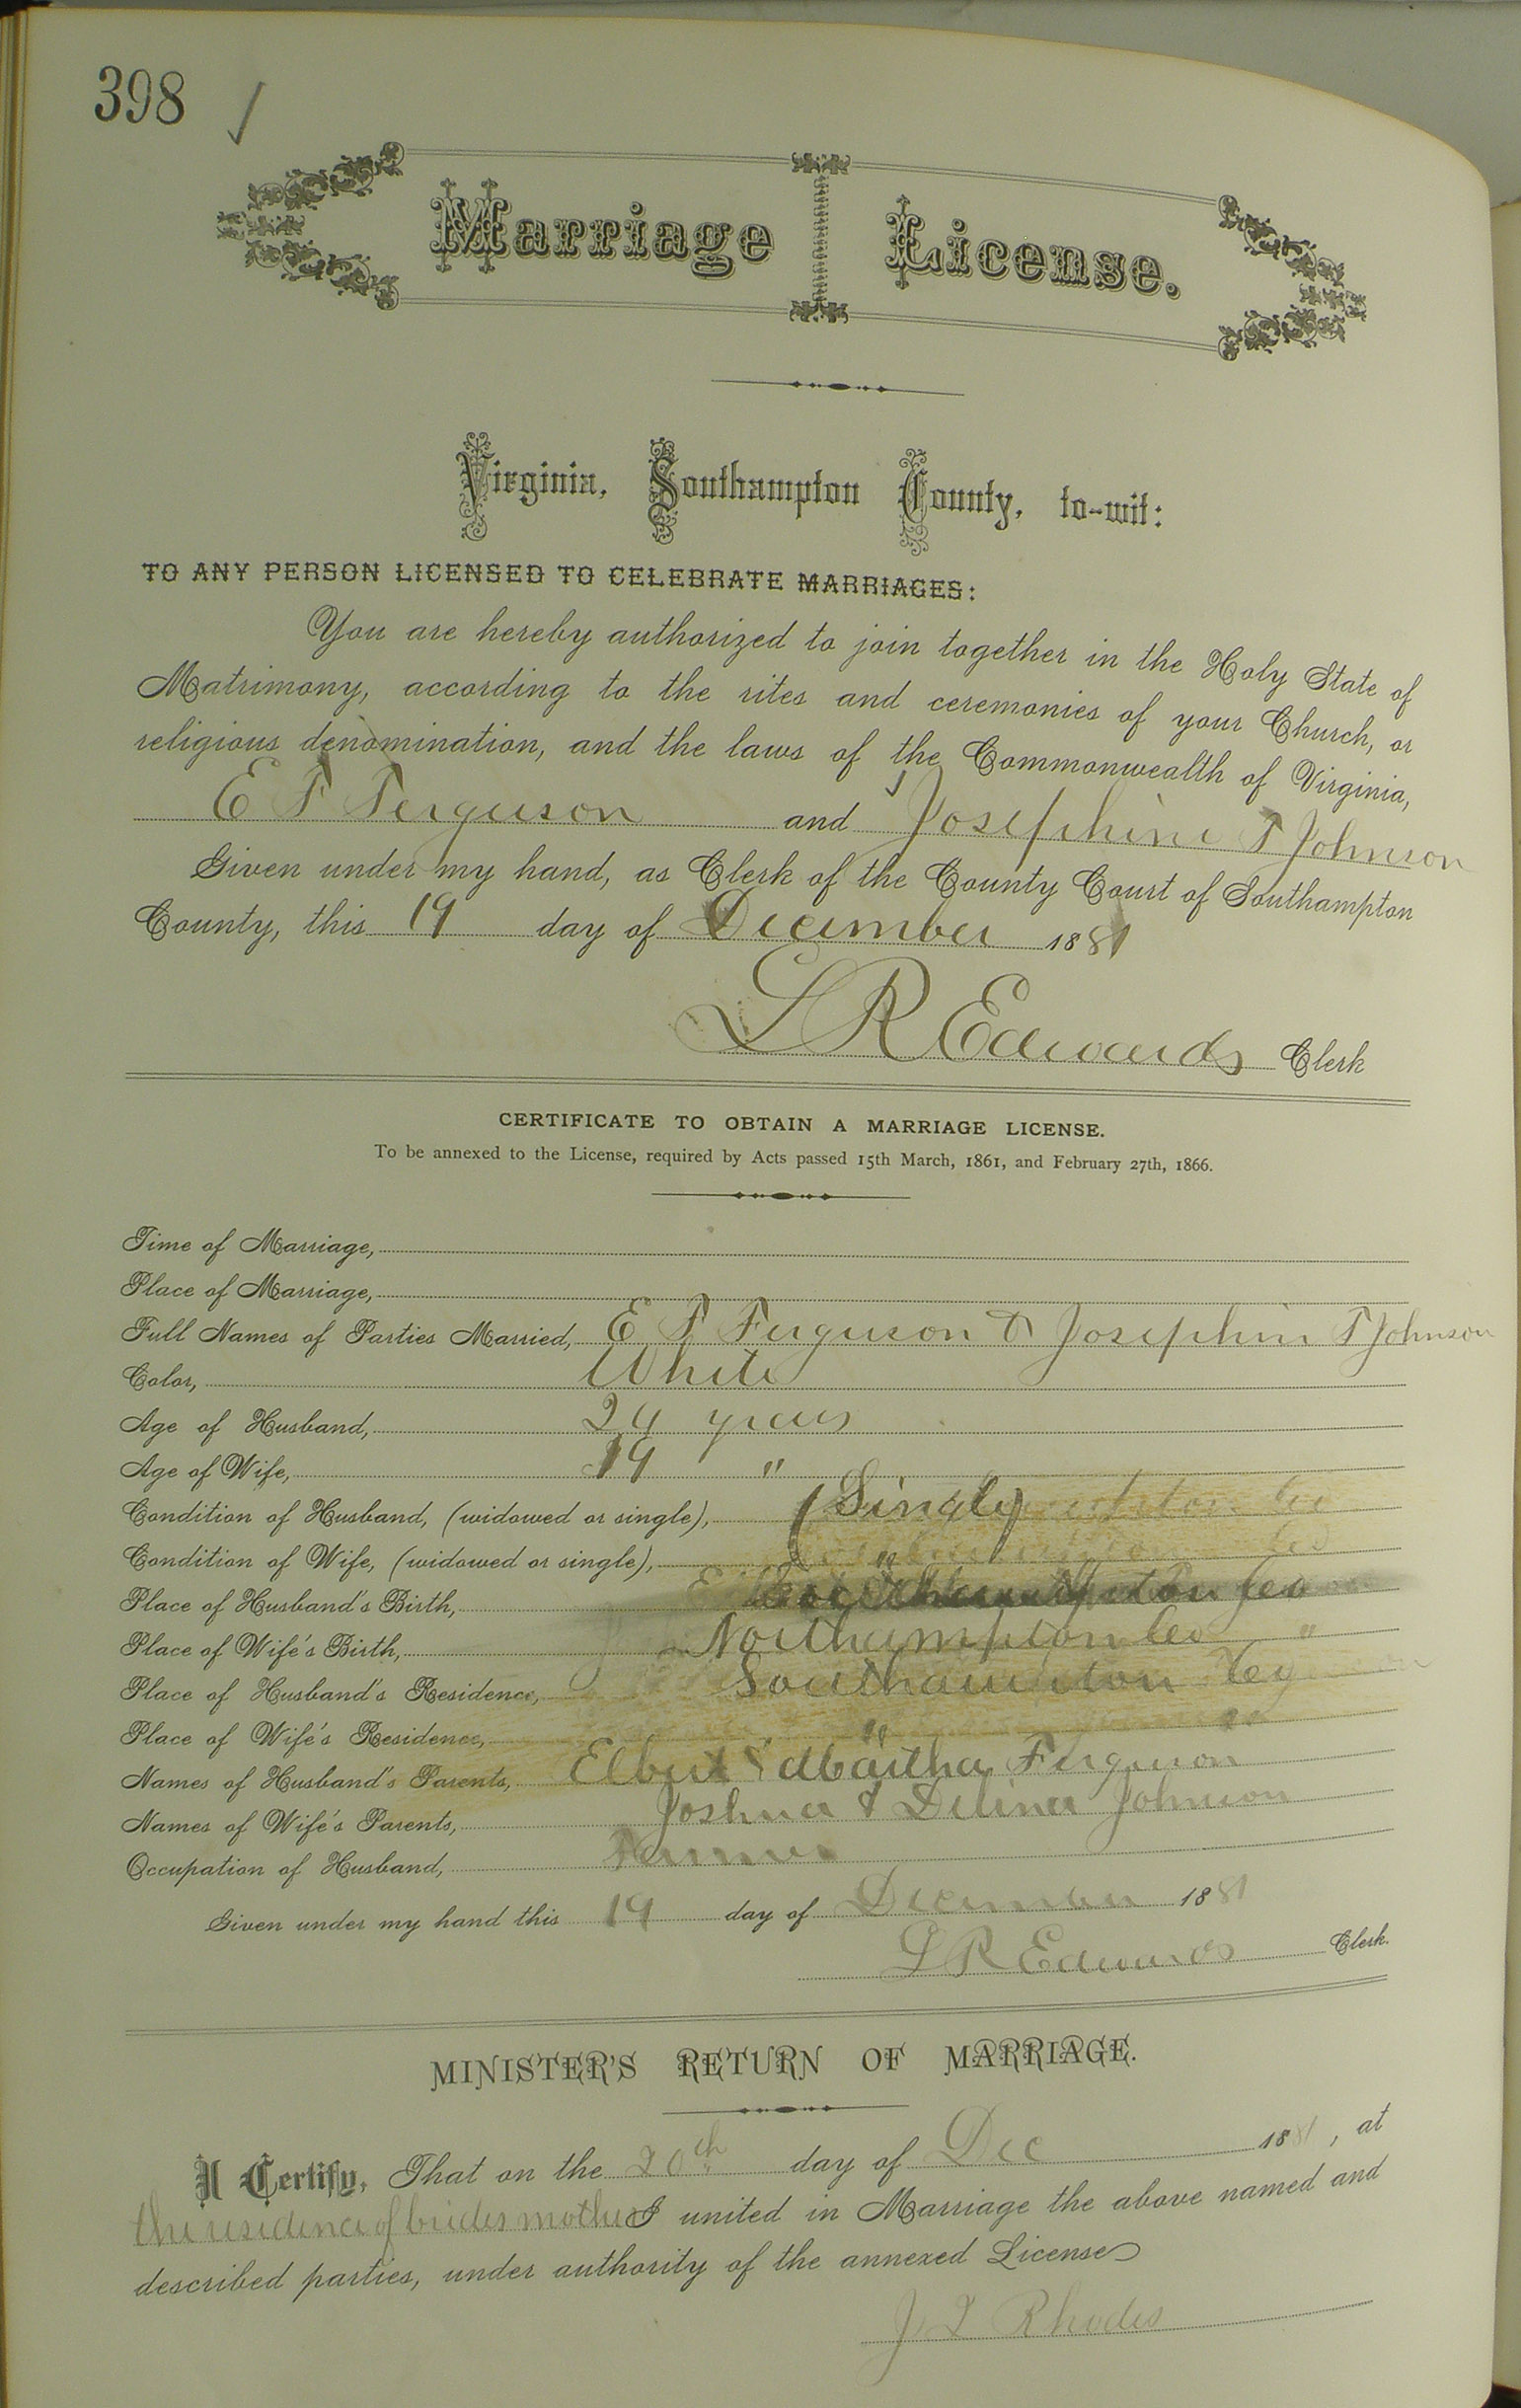 398
Marriage License.
Virginia, Southampton County, to-wit:
TO ANY PERSON LICENSED TO CELEBRATE MARRIAGES:
You are hereby authorized to join together in the Holy State of
Matrimony, according to the rites and ceremonies of your Church, or
religious denomination, and the laws of the Commonwealth of Virginia,
E F Ferguson and Josephine T Johnson
Given under my hand, as Clerk of the County Court of Southampton
County, this 19 day of December 1881
L R Edwards Clerk
CERTIFICATE TO OBTAIN A MARRIAGE LICENSE.
To be annexed to the License, required by Acts passed 15th March, 1861, and February 27th, 1866.
Time of Marriage,
Place of Marriage,
Full Names of Parties Married, E F Ferguson & Josephine T Johnson
Color, White
Age of Husband, 24 years
Age of Wife, 19 "
Condition of Husband, (widowed or single), (Single)
Condition of Wife, (widowed or single), "
Place of Husband's Birth, Co
Place of Wife's Birth, Northampton Co "
Place of Husband's Residence, Southampton Co
Place of Wife's Residence, "
Names of Husband's Parents, Elbert & Martha Ferguson
Names of Wife's Parents, Joshua & Delina Johnson
Occupation of Husband, Farmer
Given under my hand this 19 day of December 1881
L R Edwards Clerk.
MINISTER'S RETURN OF MARRIAGE.
I Certify, That on the 20th day of Dec 1881, at
the residence of brides mother I united in Marriage the above named and
described parties, under authority of the annexed License
J L Rhodes